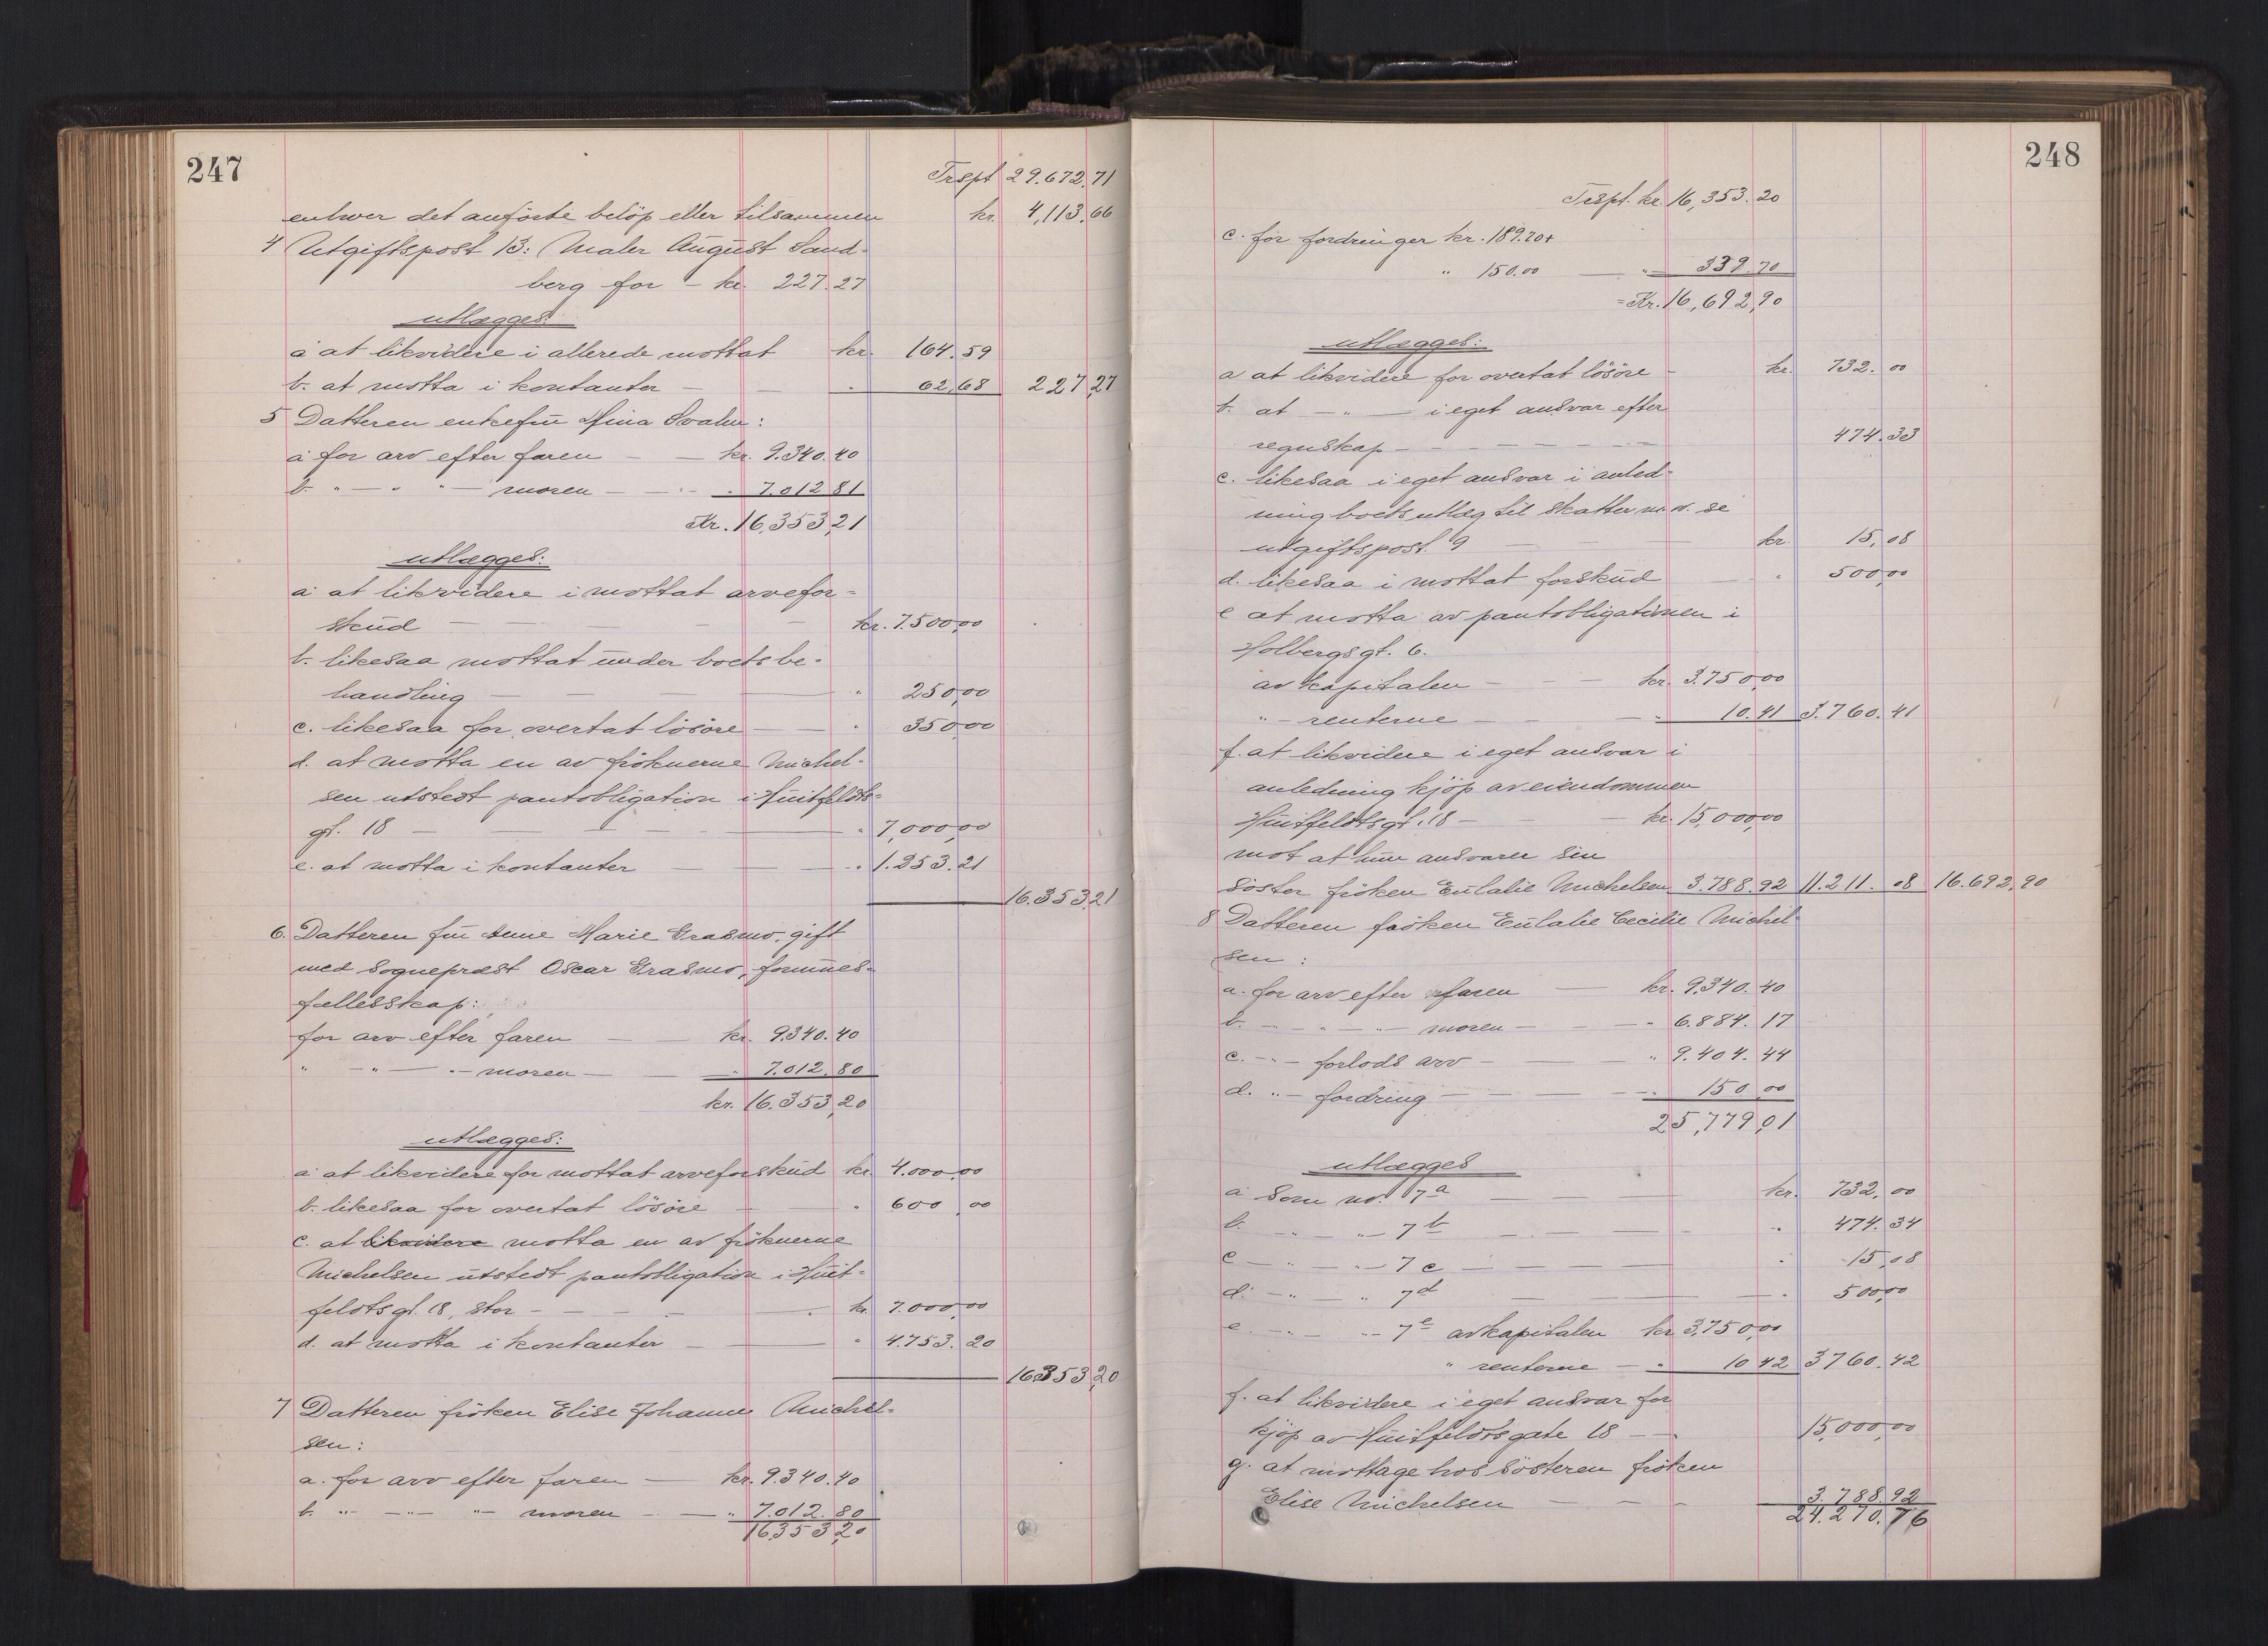 247
Trspt 29.672.71
enhver det anførte beløp eller tilsammen kr. 4,113.66
4 Utgiftspost 13: Maler August Sand-
berg for - kr. 227.27
utlægges:
a at likvidere i allerede mottat kr. 164.59
b. at motta i kontanter — — " 62,68 227,27
5 Datteren enkefru Mina Svalen:
a for arv efter faren — — kr. 9.340.40
b. " — " " — moren — — " 7.012 81
Kr. 16,353,21
utlægges:
a at likvidere i mottat arvefor-
skud — — — — — kr. 7.500,00
b. likesaa mottat under boets be-
handling — — — — " 250,00
c. likesaa for overtat løsøre — — " 350,00
d. at motta en av frøknerne Michel-
sen utstedt pantobligation i Huitfeldts-
gt. 18 — — — — — " 7,000,00
e. at motta i kontanter — — — " 1.253.21
16.353,21
6. Datteren fru Anne Marie Erasmo, gift
med sogneprest Oscar Erasmo, formues-
fællesskap:
for arv efter faren — — kr. 9.340.40
" — " — " — moren — — " 7.012.80
kr. 16.353,20
utlægges:
a at likvidere for mottat arveforskud kr. 4.000,00
b. likesaa for overtat løsøre — — " 600,00
c. at likvidere motta en av frøknerne
Michelsen utstedt pantobligation i Huit-
feldtsgt. 18, stor — — — — kr. 7.000,00
d. at motta i kontanter — — " 4.753.20
16353,20
7 Datteren frøken Elise Johanne Michel-
sen:
a. for arv efter faren — kr. 9.340.40
b. " — " — " — moren — — " 7.012.80
16,353,20
248
Trspt. kr. 16,353.20
c. for fordringer kr. 189.70+
" 150.00 — " — 339.70
= Kr. 16,692,90
utlægges:
a at likvidere for overtat løsøre — kr. 732.00
b. at — " — i eget ansvar efter
regnskap — — — — — — 474.33
c. likesaa i eget ansvar i anled-
ning boets utlæg til skatter m.v. se
utgiftspost 9 — — — kr. 15,08
d. likesaa i mottat forskud — " 500,00
e at motta av pantobligationen i
Holbergsgt. 6.
av kapitalen — — — kr. 3.750,00
" — renterne — — — " 10.41 3.760.41
f. at likvidere i eget ansvar i
anledning kjøp av eiendommen
Huitfeldtsgt. 18 — — — kr. 15,000,00
mot at hun ansvarer sin
søster frøken Eulalie Michelsen 3.788.92 11.211.08 16.692,90
8 Datteren frøken Eulalie Cecilie Michel-
sen:
a. for arv efter faren — kr. 9.340.40
b. — " — " — moren — — " 6.884.17
c. — " — forlods arv — — " 9.404.44
d. " — fordring — — — " 150,00
25,779,01
utlægges
a som no. 7a — — — kr. 732,00
b. — " — " — 7b — — — " 474.34
c — " — " — 7c — — — " 15,08
d. — " — " 7d — — — " 500,00
e. — " — " 7e av kapitalen kr 3,750,00
" renterne — " 10 42 3760.42
f. at likvidere i eget ansvar for
kjøp av Huitfeldtsgate 18 — — 15,000,00
g. at mottage hos søsteren frøken
Elise Michelsen — — — 3.788.92
24.270.76